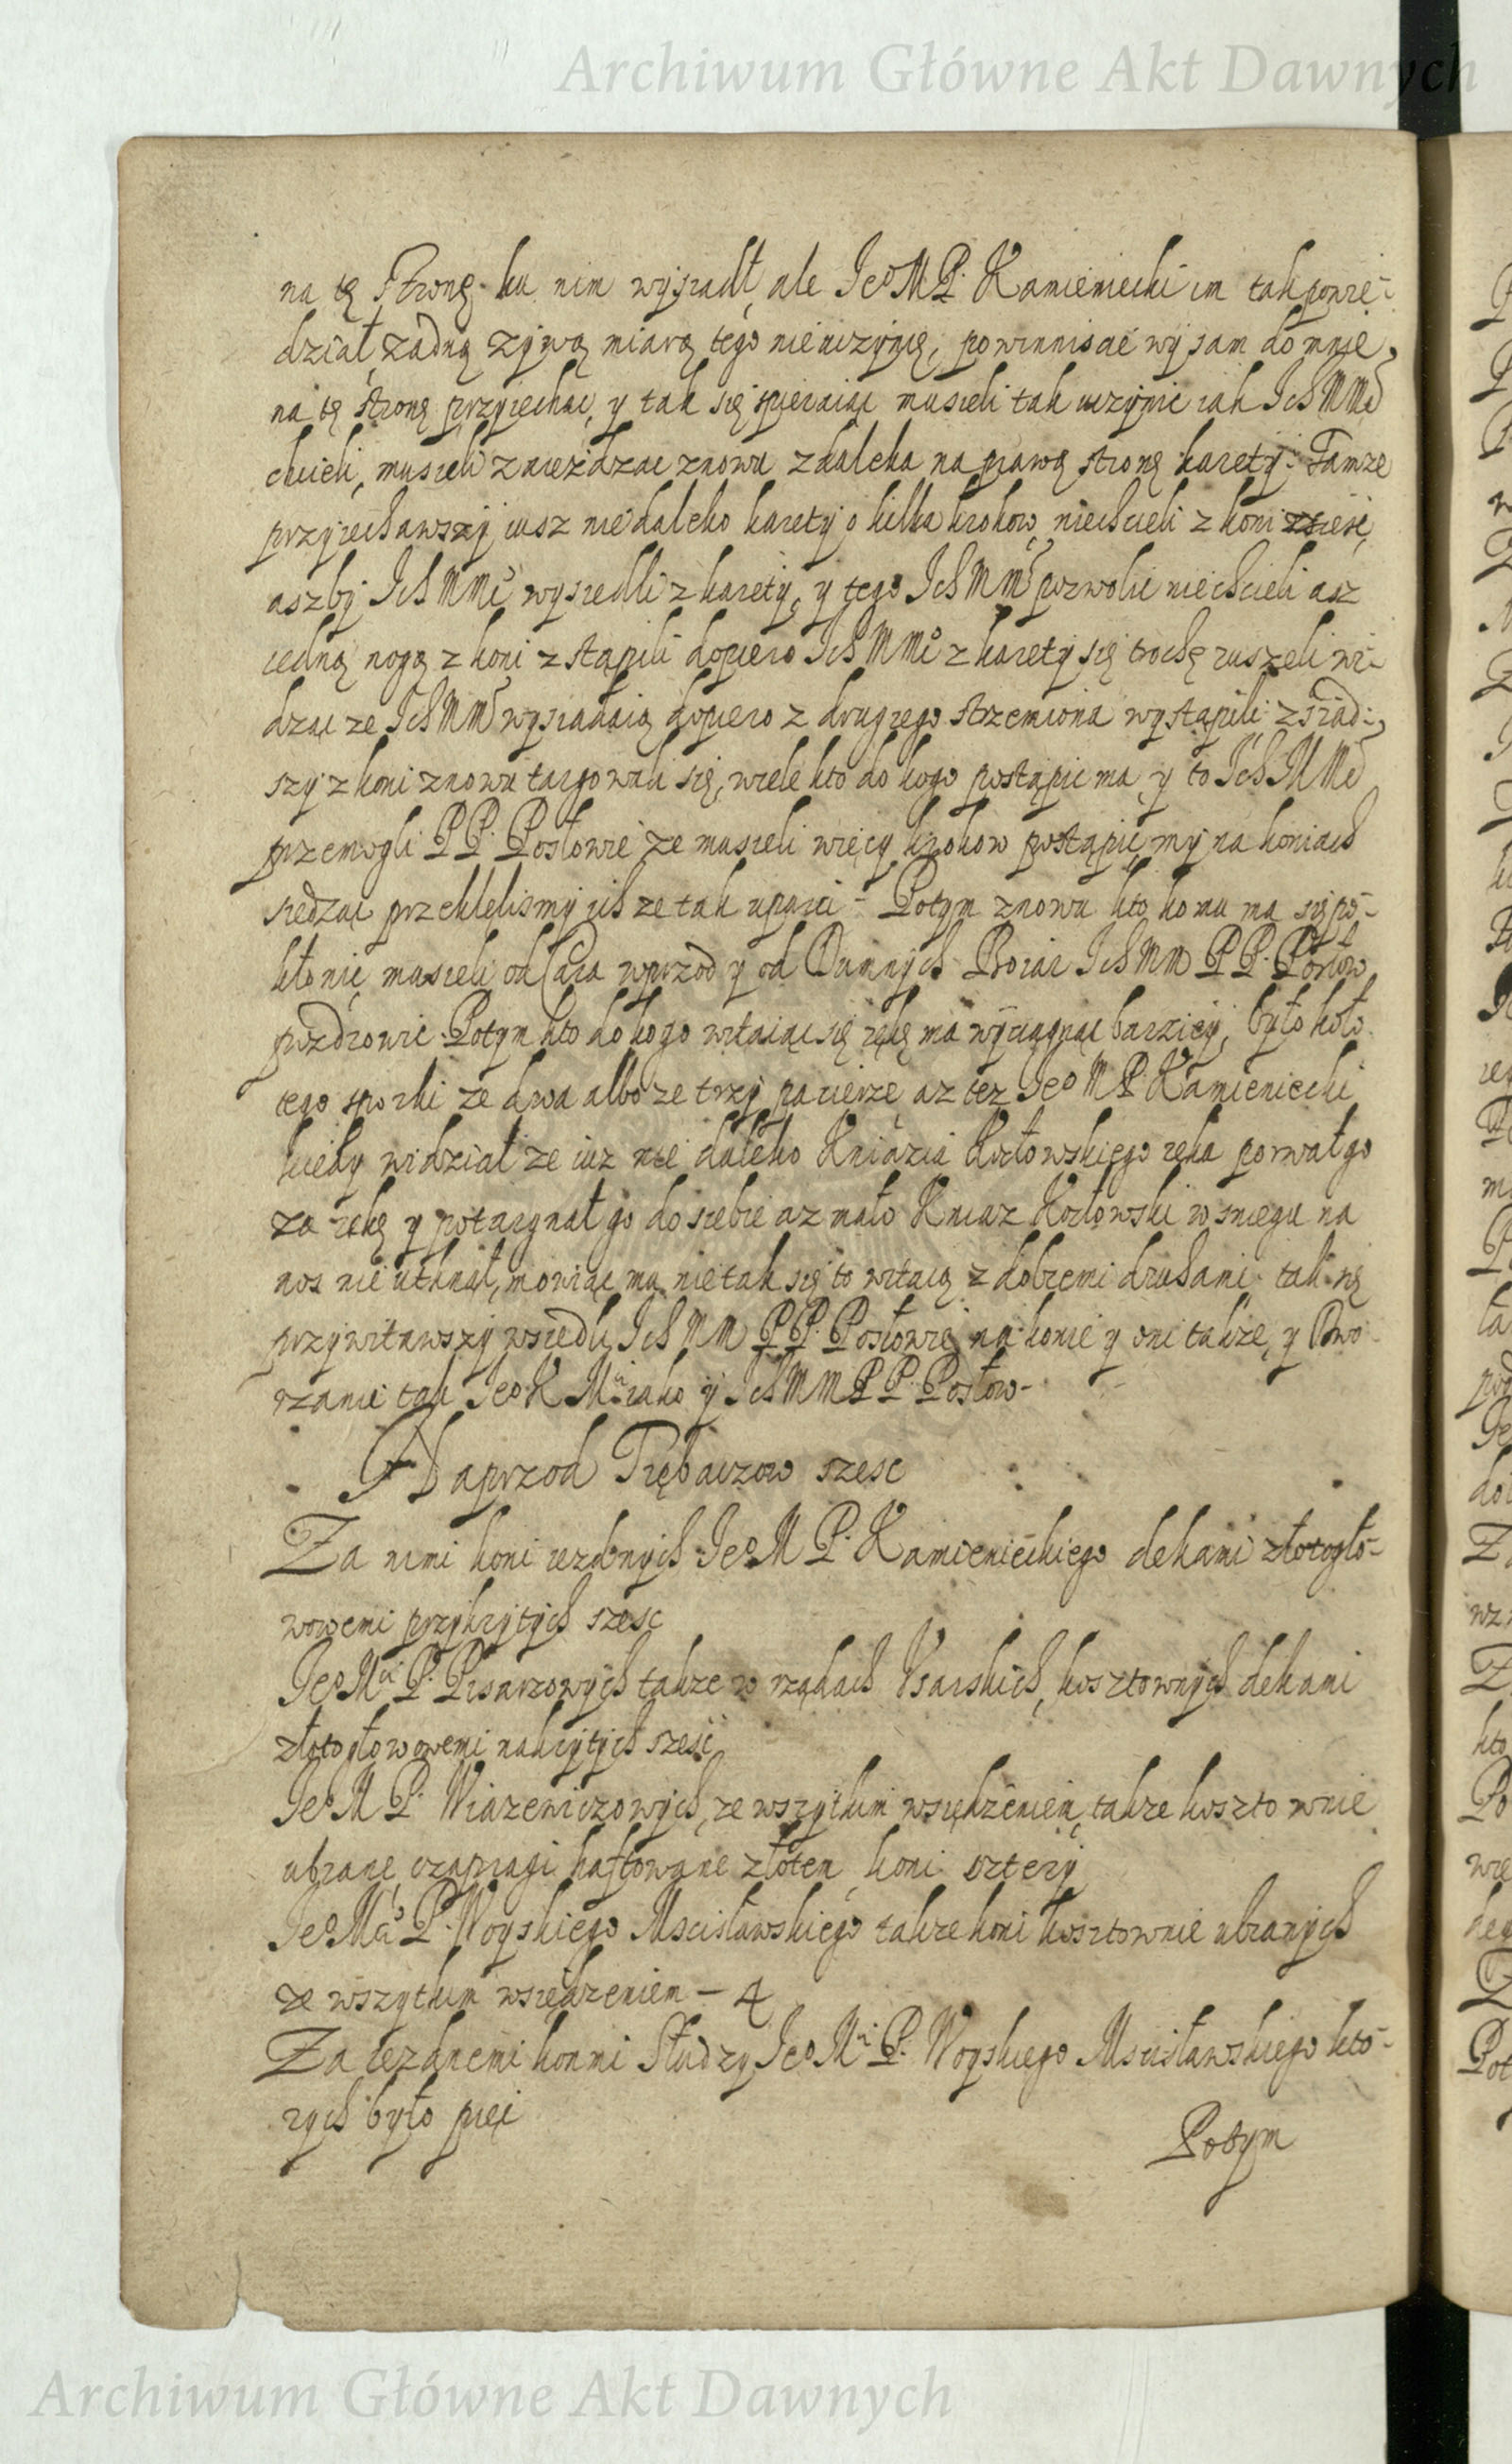 Archiwum Główne Akt Dawnych
na tę stronę ku nim wysiadł, ale Jeo M. P. Kamieniecki im tak powie-
dział, żadną zywą miarą tego nieuczynię, powinniscie wy sam do mnie,
na tę stronę przyiechac, y tak się spieraiąc musieli tak uczynic iak IchMMć
chcieli, musieli zaiezdzac znowu zdaleka na prawą stronę karety. Tamze
przyiechawszy iusz niedaleko karety o kilka krokow, niechcieli z koni zsieść,
aszby IchMMć wysiedli z karety, y tego IchMMć pozwolic niechcieli asz
iedną nogą z koni zstąpili dopiero IchMMć z karety się trochę ruszeli wi-
dząc ze IchMMć wysiadaią dopiero z drugiego strzemiona wystąpili: zsiad-
szy z koni znowu targowali się, wiele kto do kogo postąpic ma, y to IchMMć
przemogli PP. Posłowie ze musieli więcy krokow postąpic, my na koniach
siedząc przeklelismy ich ze tak uparci - Potym znowu kto komu ma się po-
kłonić, musieli od Cara wprzod y od Dumnych Boiar IchMM PP. Posłow
pozdrowic. Potym kto do kogo witaiąc się rękę ma wyciągnąc barziey, było koło
tego sporki ze dwa albo ze trzy pacierze, az tez Jeo M P. Kamieniecki
kiedy widział ze iuz nie daleko Kniazia Kozłowskiego ręka porwał go
za rękę y potargnał go do siebie az mało Kniaz Kozłowski w sniegu na
nos nie utknął, mowiąc mu nie tak się to witaią z dobremi druhami, tak się
przywitawszy wsiedli IchMM PP. Posłowie na konie y oni takze, y Dwo-
rzanie tak Jeo K Mći iako y IchMM PP. Posłow-
Naprzod Trębaczow szesc
Za nimi koni iezdnych Jeo M P. Kamienieckiego dekami złotogło-
wowemi przykrytych szesc
Jeo Mći P. Pisarzowych takze w rządach Usarskich, kosztownych dekami
złotogłowowemi nakrytych szesc
Jeo M P. Wiazewiczowych, ze wszytkim wsiędzeniem, takze kosztownie
ubrane, czapragi haftowane złotem, koni sztery
Jeo Mći P. Woyskiego Mscisławskiego takze koni kosztownie ubranych
ze wszytkim wsiędzeniem - 4
Za iezdnemi konmi Słudzy Jeo Mći P. Woyskiego Mscisławskiego kto-
rych było pięc
Potym
Archiwum Główne Akt Dawnych